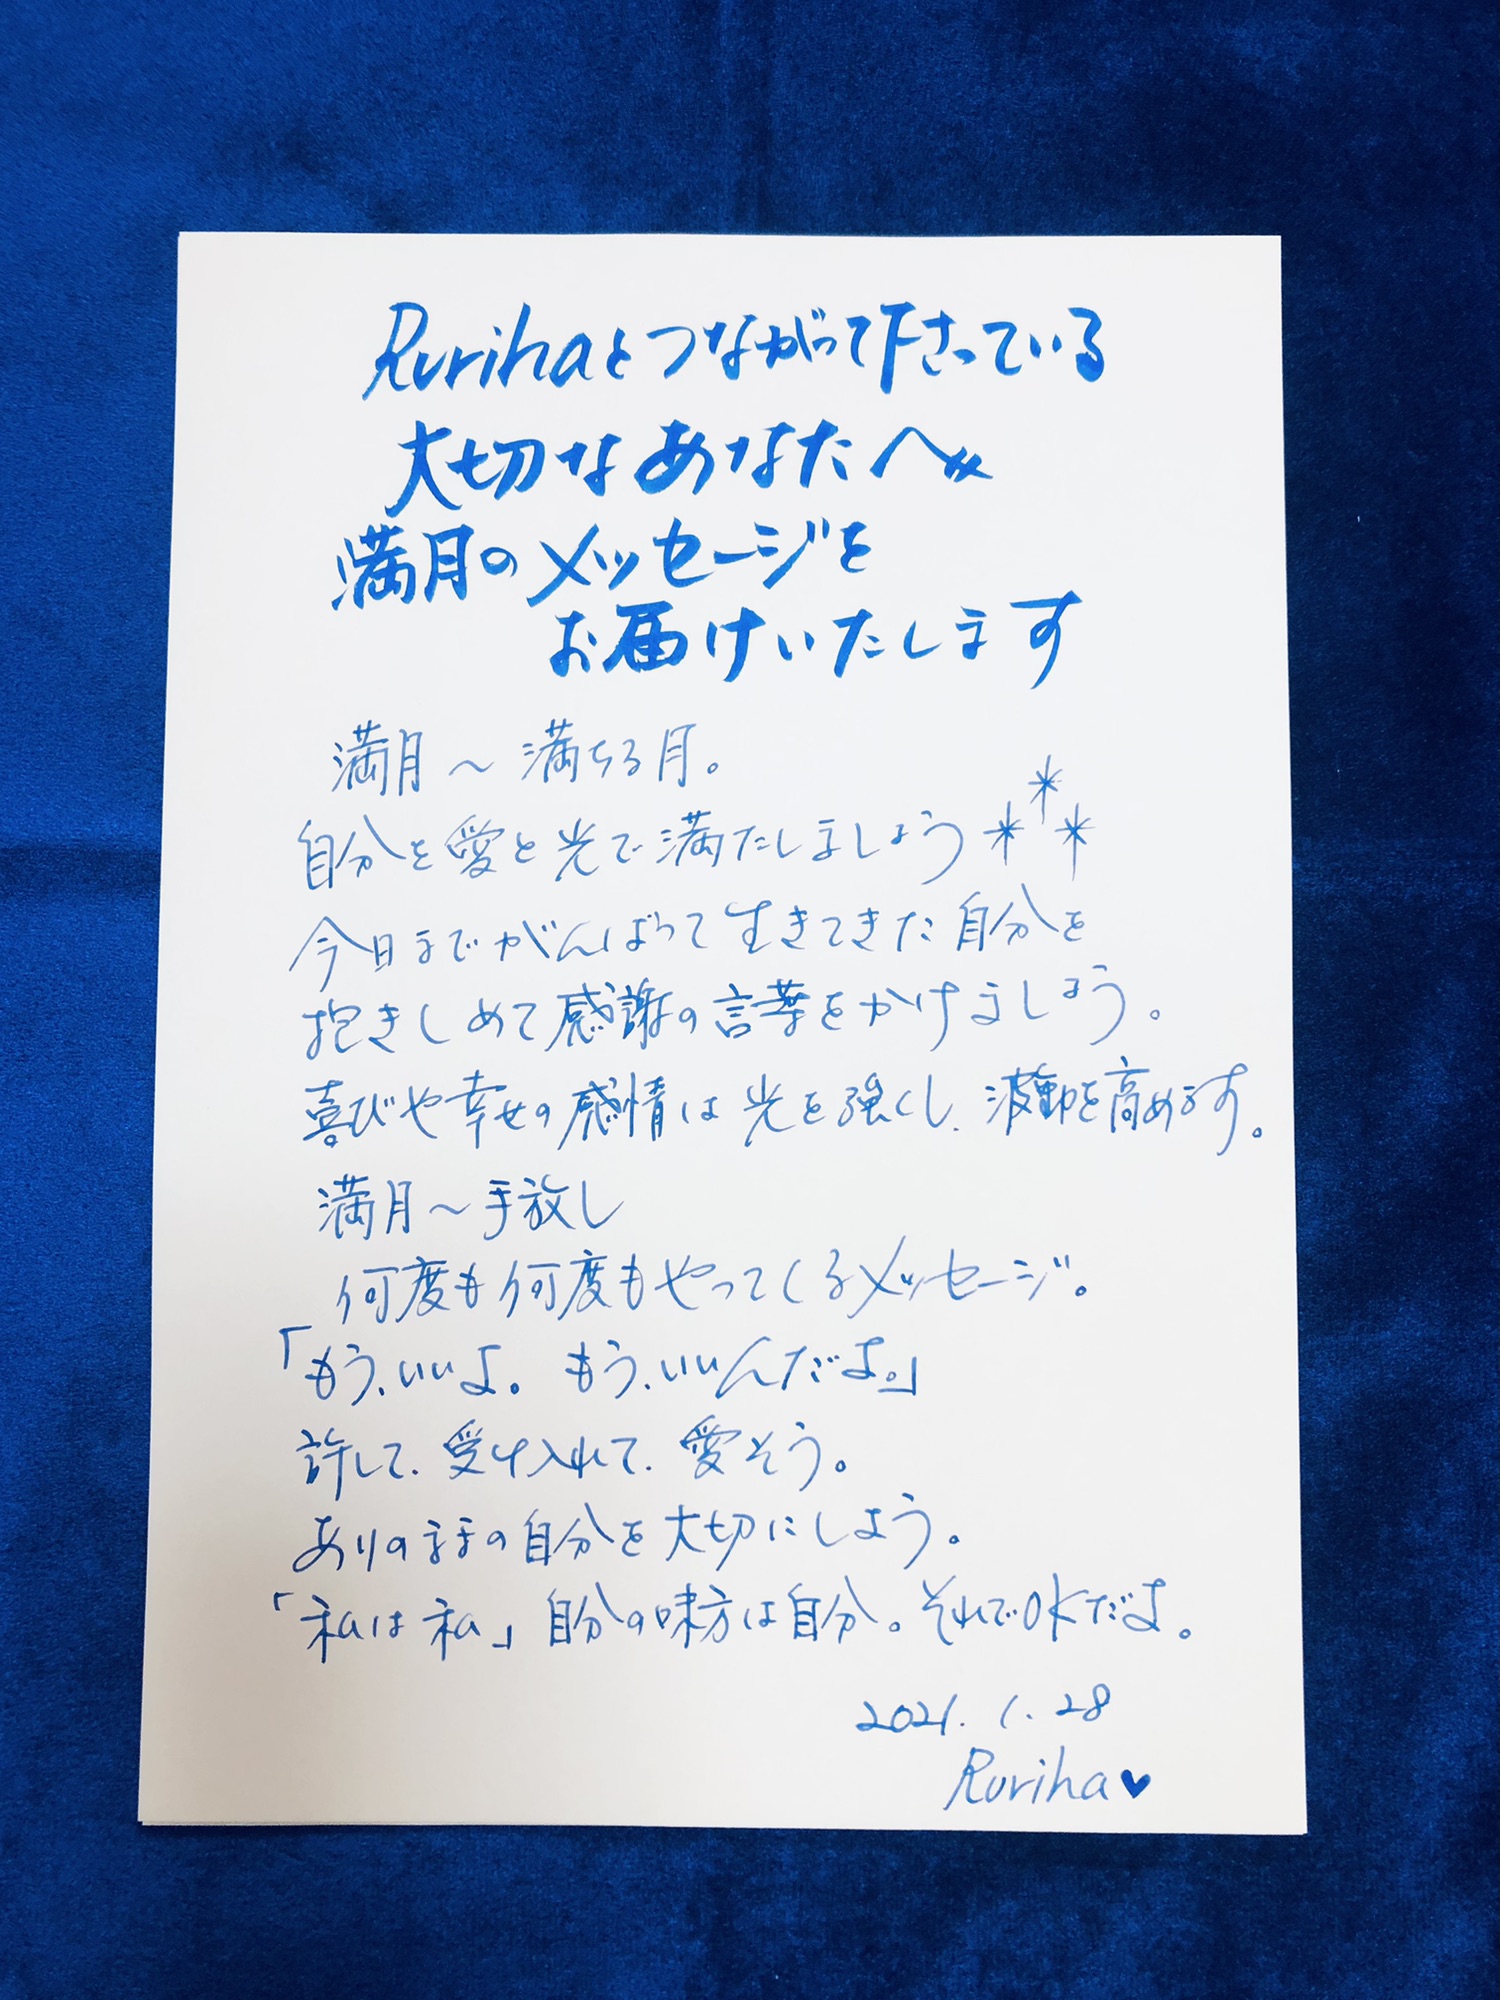 Rurihaとつながって下さっている
大切なあなたへ〃
満月のメッセージを
お届けいたします
満月〜満ちる月。
自分を愛と光で満たしましょう***
今日までがんばって生きてきた自分を
抱きしめて感謝の言葉をかけましょう。
喜びや幸せの感情は光を強くし、波動を高めます。
満月〜手放し
何度も何度もやってくるメッセージ。
「もう、いいよ。もう、いいんだよ。」
許して、受け入れて、愛そう。
ありのままの自分を大切にしよう。
「私は私」自分の味方は自分。それでOKだよ。
2021.1.28
Ruriha♥